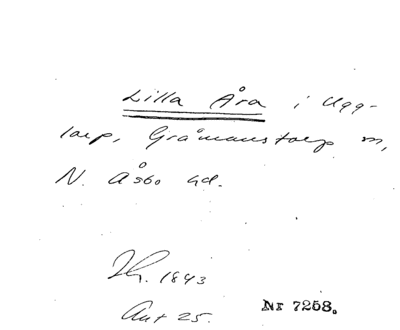 Lilla Åra i Ugg-
larp, Gråmanstorp sn,
N. Åsbo hd.
Lh. 1843
Ant 25.
Nr 7258.